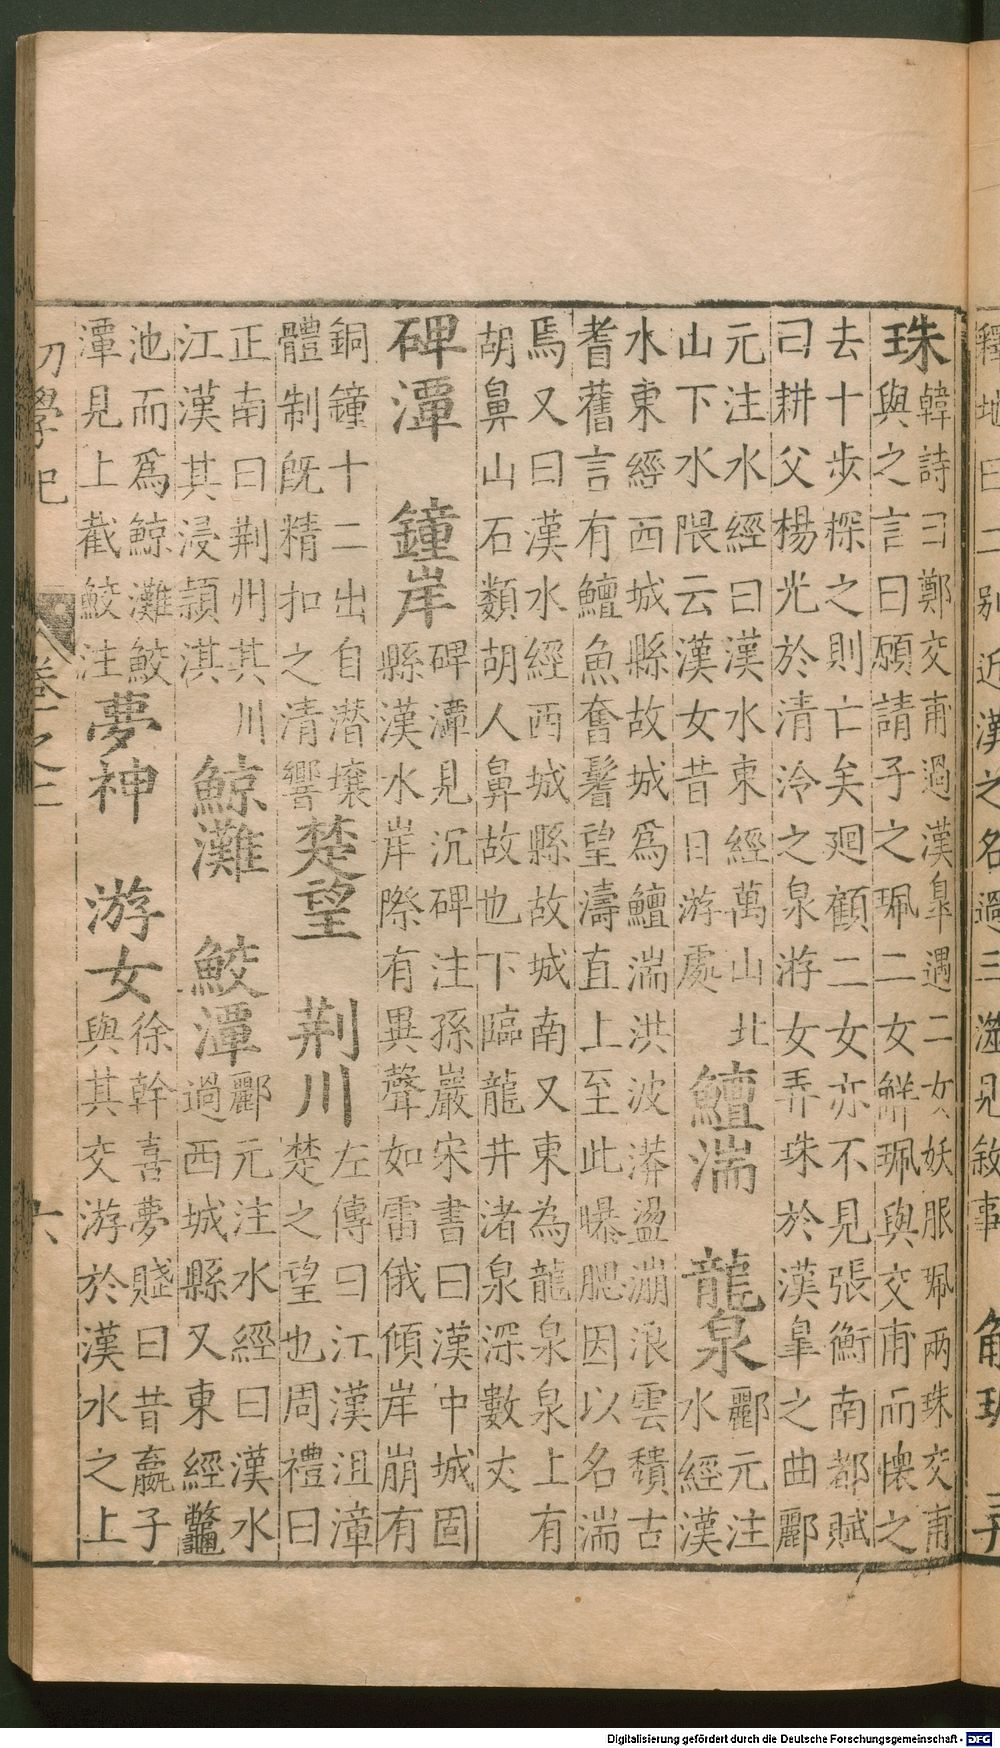 釋地曰二别近漢之名過三澨見敘事
珠
韓詩曰鄭交甫過漢皐遇二女妖服珮兩珠交甫
與之言曰願請子之珮二女觧珮與交甫而懷之
去十歩探之則亡矣廻顧二女亦不見張衡南都賦
曰耕父楊光於清泠之泉游女弄珠於漢皐之曲酈
元注水經曰漢水東經萬山北
山下水隈云漢女昔日游處
鱣湍 龍泉
酈元注
水經漢
水東經西城縣故城爲鱣湍洪波漭盪漰浪雲頹古
耆舊言有鱣魚奮鬐望濤直上至此曝腮因以名湍
焉又曰漢水經西城縣故城南又東為龍泉泉上有
胡鼻山石類胡人鼻故也下臨龍井渚泉深數丈
碑潭 鐘岸
碑潭見沉碑注孫巖宋書曰漢中城固
縣漢水岸際有異聲如雷俄傾岸崩有
銅鐘十二出自潛壤
體制旣精扣之清響
楚望 荆川
左傳曰江漢沮漳
楚之望也周禮曰
正南曰荆州其川
江漢其浸潁淇
鯨灘 鮫潭
酈元注水經曰漢水
過西城縣又東經
池而爲鯨灘鮫
潭見上截鮫注
夢神 游女
徐幹喜夢賤曰昔嬴子
與其交游於漢水之上
初學記
六
Digitalisierung gefördert durch die Deutsche Forschungsgemeinschaft - DFG